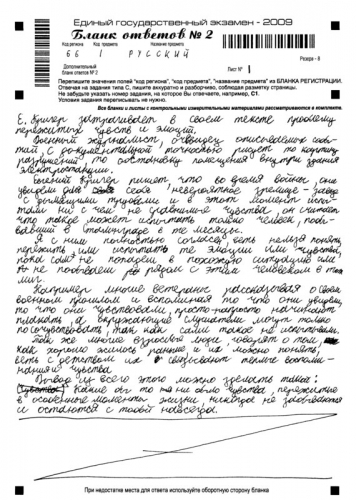 Единый государственный экзамен - 2009
Бланк ответов № 2
Код региона Код предмета Название предмета
66 1 РУССКИЙ
Резерв - 8
Дополнительный бланк ответов № 2
Лист № 1
Перепишите значения полей "код региона", "код предмета", "название предмета" из БЛАНКА РЕГИСТРАЦИИ.
Отвечая на задания типа С, пишите аккуратно и разборчиво, соблюдая разметку страницы.
Не забудьте указать номер задания, на которое Вы отвечаете, например, С1.
Условия задания переписывать не нужно.
Все бланки и листы с контрольными измерительными материалами рассматриваются в комплекте.
Е. Кригер затрагивает в своем тексте проблему
пережитых чувств и эмоций.
Военный журналист, очевидец описываемых собы-
тий с документальной точностью рисует то картину
разрушений, то обстановку помещения внутри здания
электростанции.
Евгений Кригер пишет что во время войны, они
увидели для себя невероятное зрелище - завод
с дымящими трубами и в этот момент испы-
тали ни с чем не сравнимые чувства, он считает
что такое может испытать только человек, побы-
вавший в Сталинграде в те месяцы.
Я с ним полностью согласен, ведь нельзя понять,
пережить или испытать те эмоции или чувства,
пока сам не попадешь в похожую ситуацию или
не побываешь рядом с этим человеком в тот
миг.
Например многие ветераны рассказывая о своем
военном прошлом и вспоминая то что они увидели,
то что они чувствовали, просто-напросто начинают
плакать, а окружающие слушатели могут только
посочувствовать, так как сами такое не испытывали.
Так же многие взрослые люди, говорят о том,
как хорошо жилось раньше, и их можно понять,
ведь с детством их связывают теплые воспоми-
нания и чувства.
Вывод из всего этого можно сделать таков:
Какие бы то ни было чувства, пережитые
в особенные моменты жизни, никогда не забываются
и остаются с тобой навсегда.
При недостатке места для ответа используйте оборотную сторону бланка